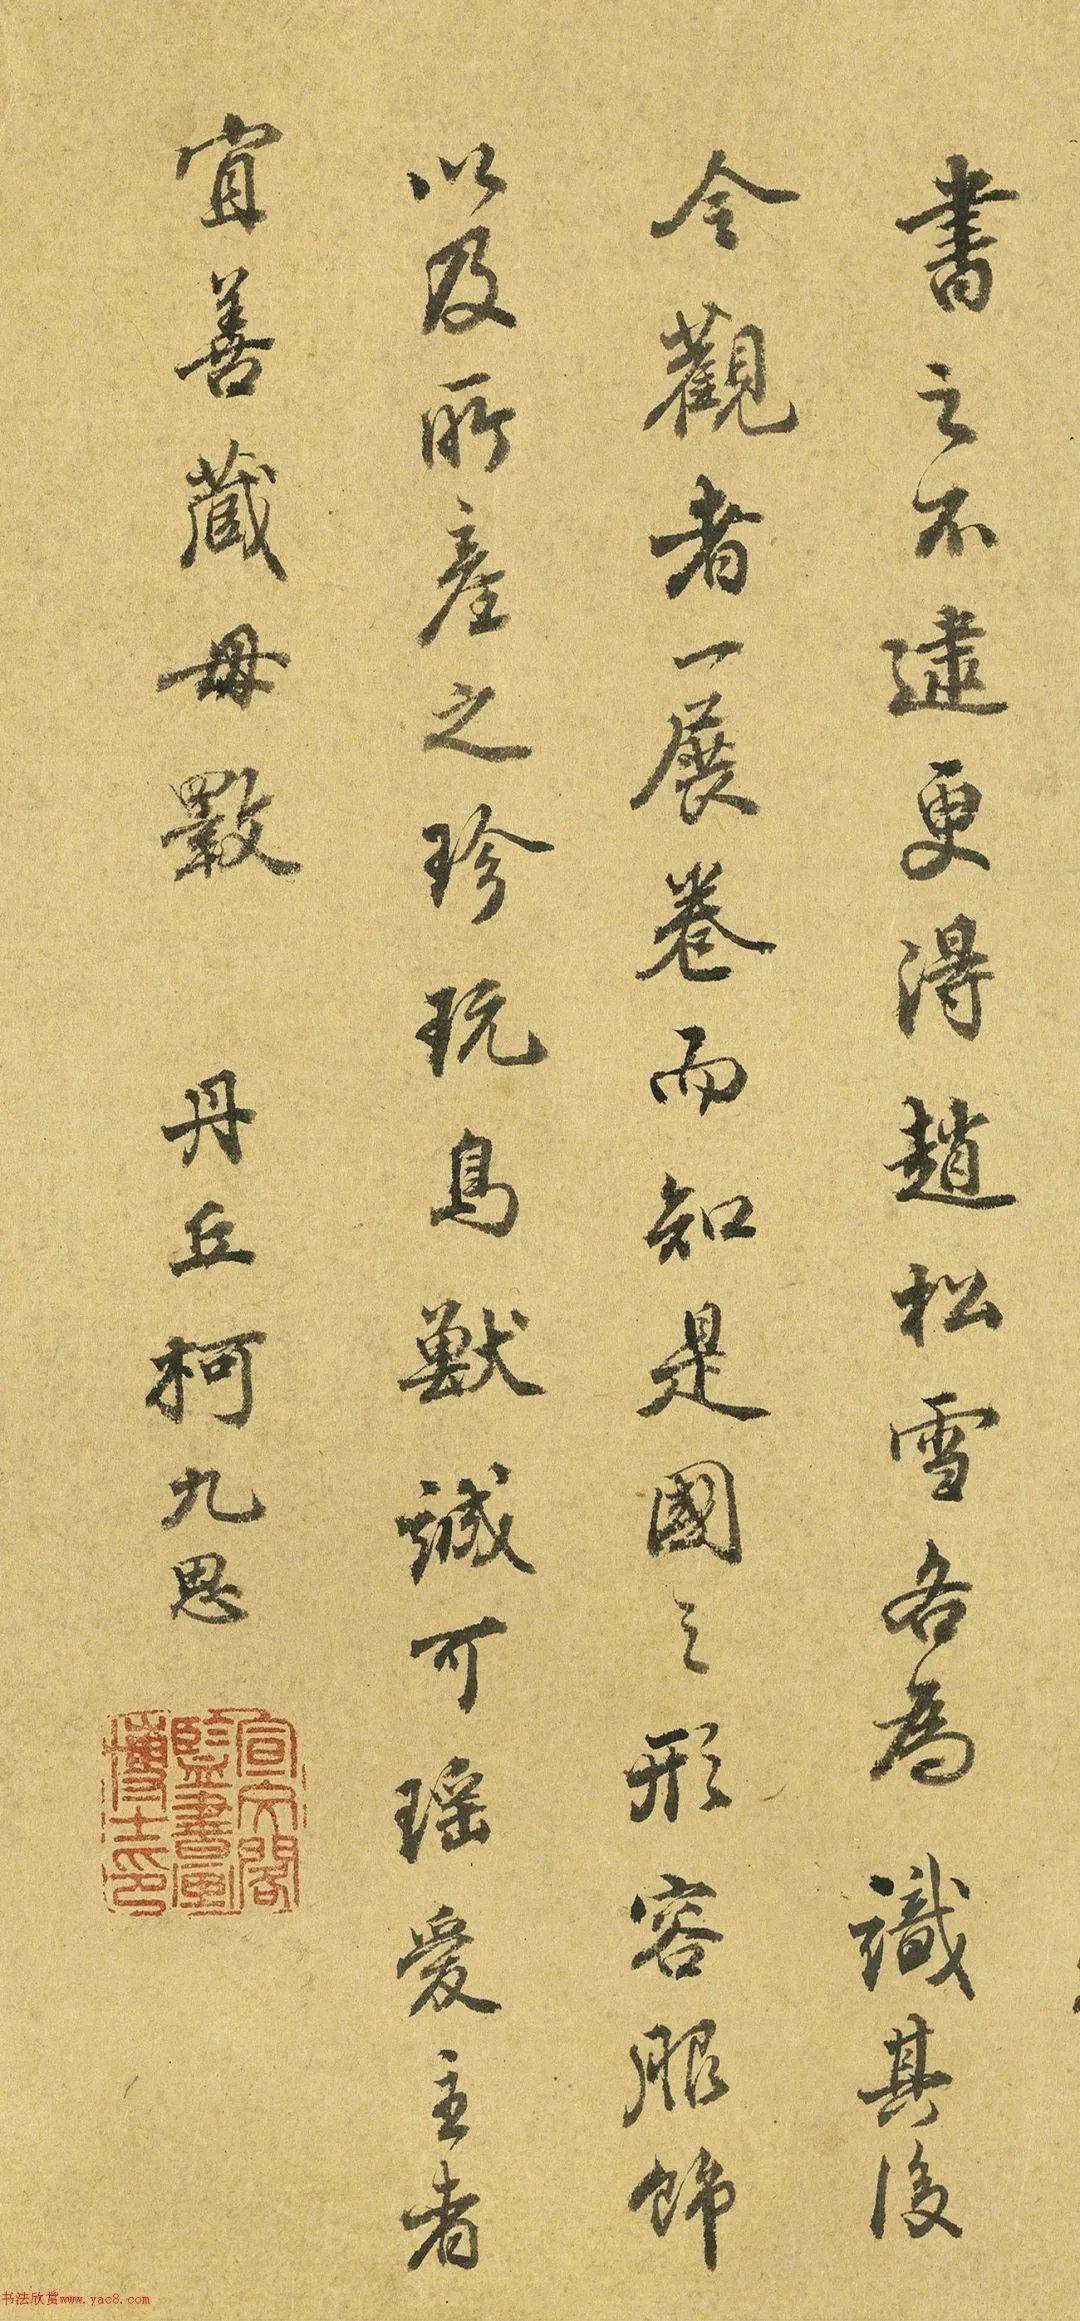 書之不逮更得趙松雪各為識其後
令觀者一展卷而知是國之形容服飾
以及所產之珍玩鳥獸誠可瑶愛主者
宜善藏毋斁
丹丘柯九思
宣文閣監書畫博士印
书法欣赏www.yac8.com